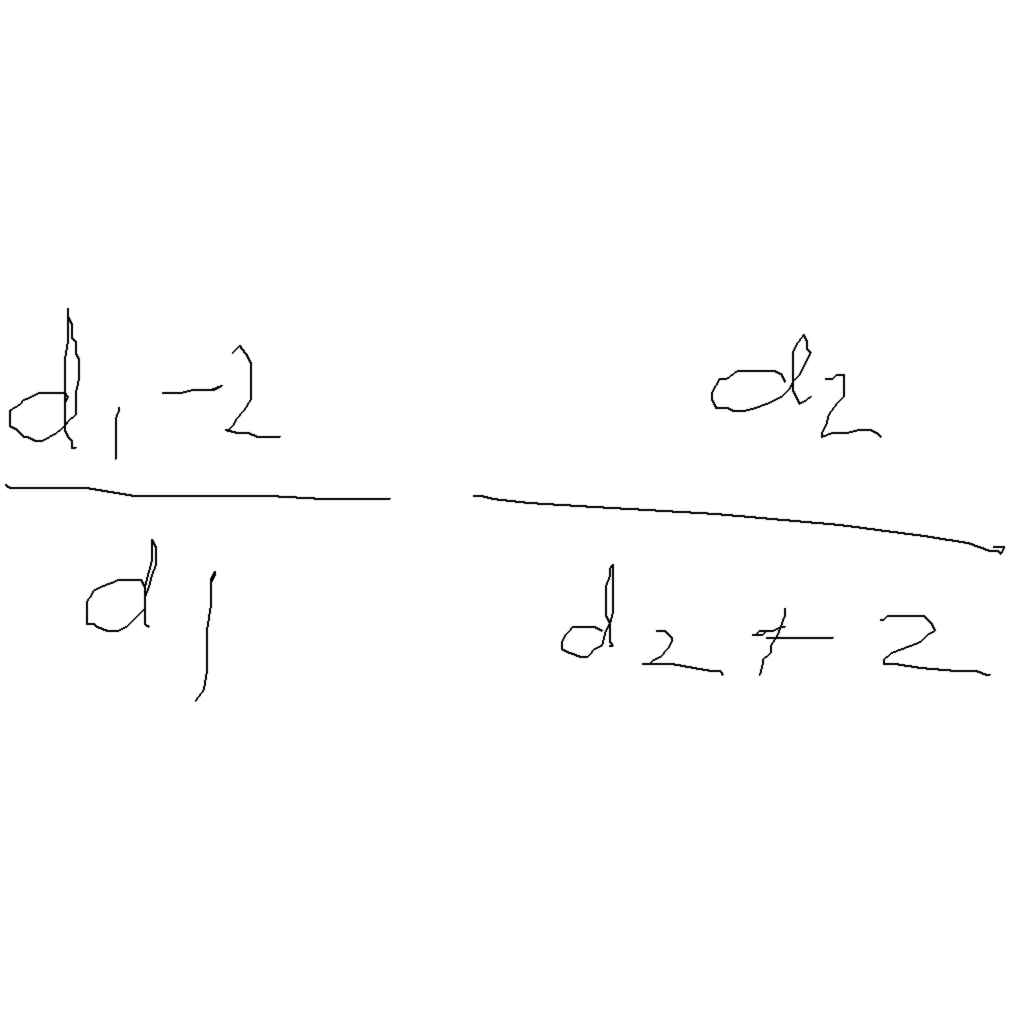 \frac{d_1 - 2}{d_1} \frac{d_2}{d_2 + 2}